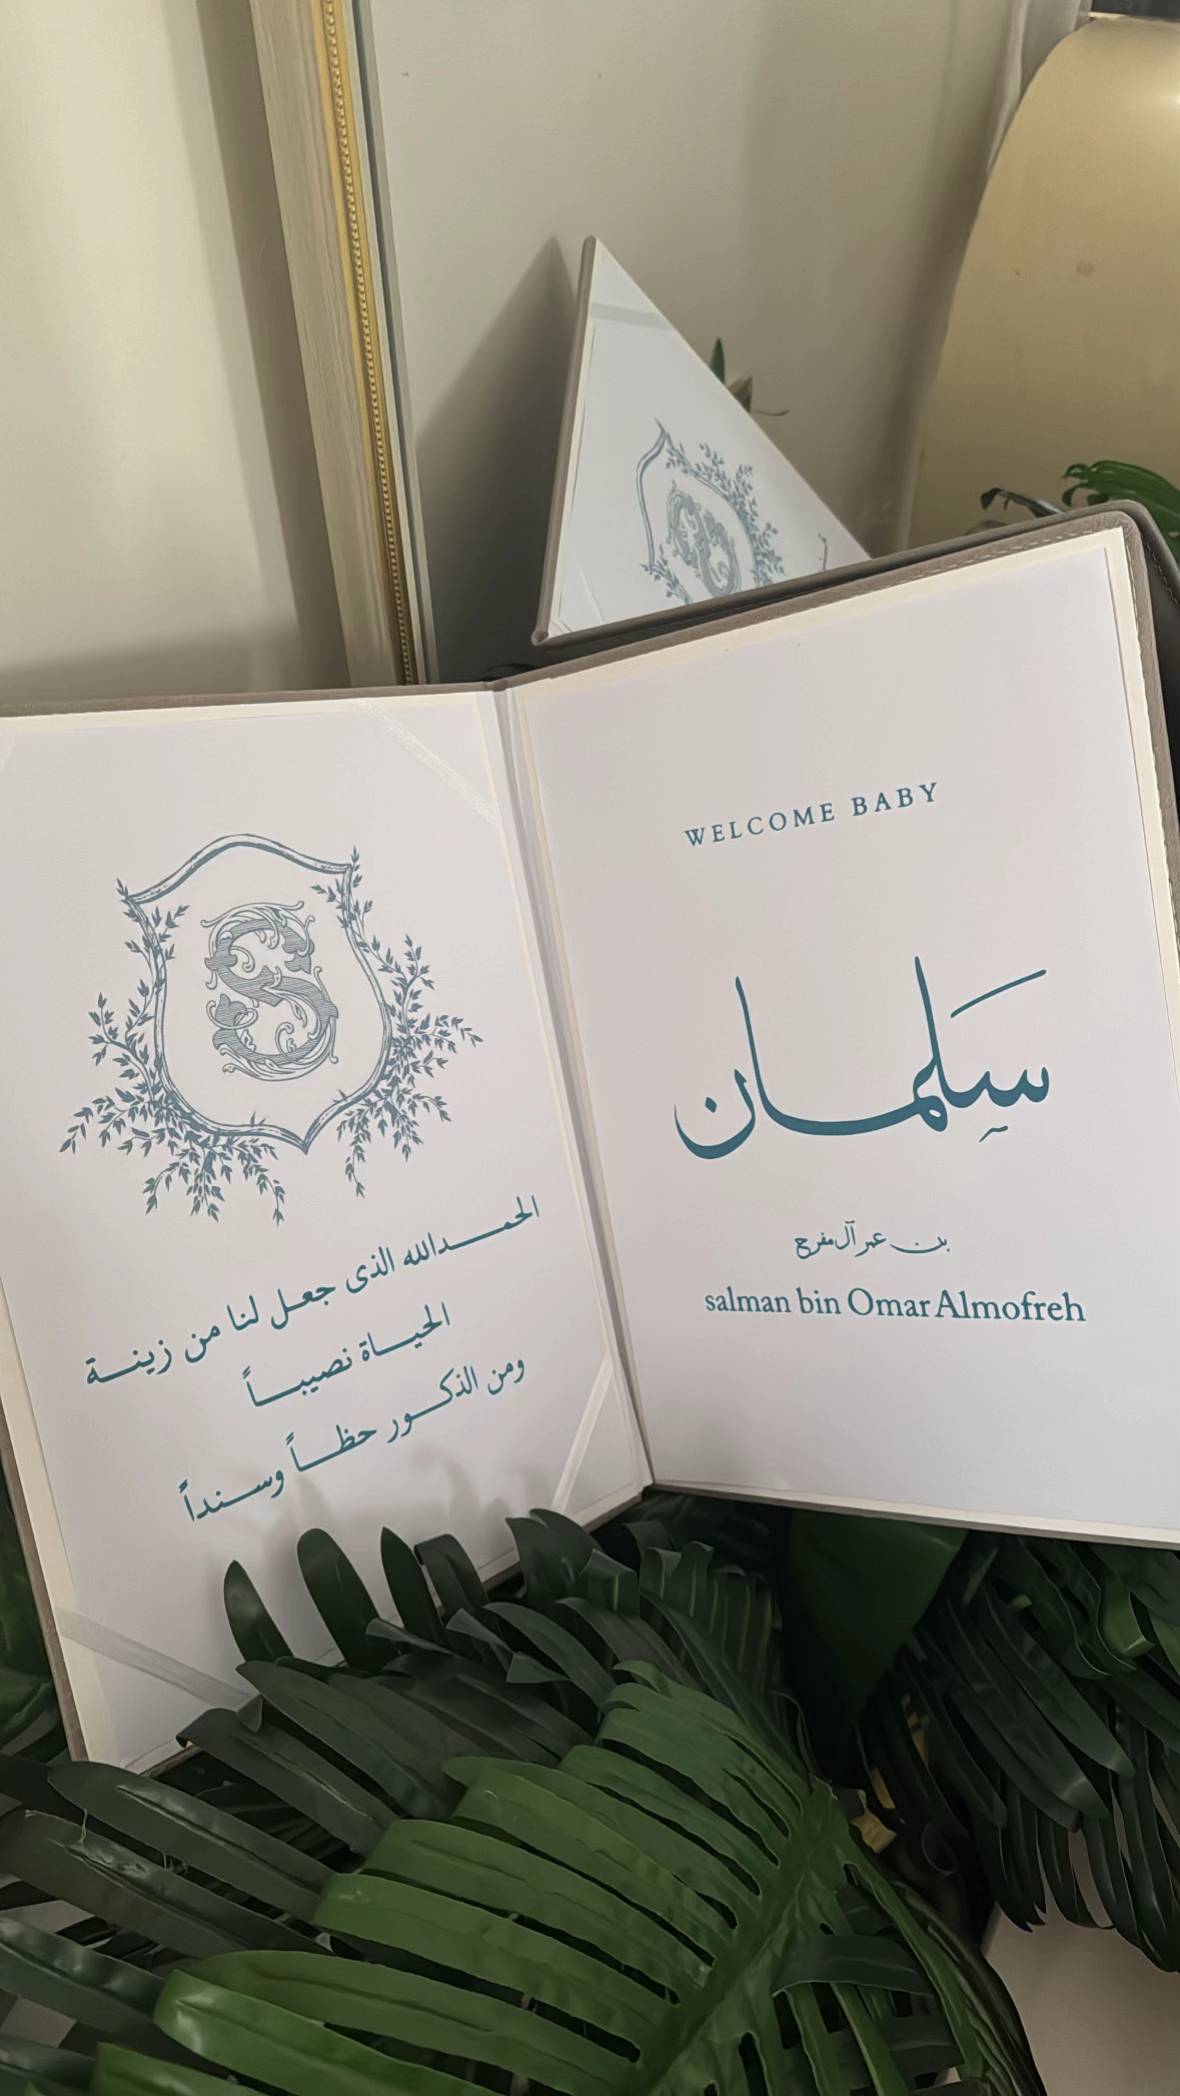 S
الحمدالله الذى جعل لنا من زينة
الحياة نصيباً
ومن الذكور حظاً وسنداً
WELCOME BABY
سلِمان
بن عمر آل مفرح
salman bin Omar Almofreh